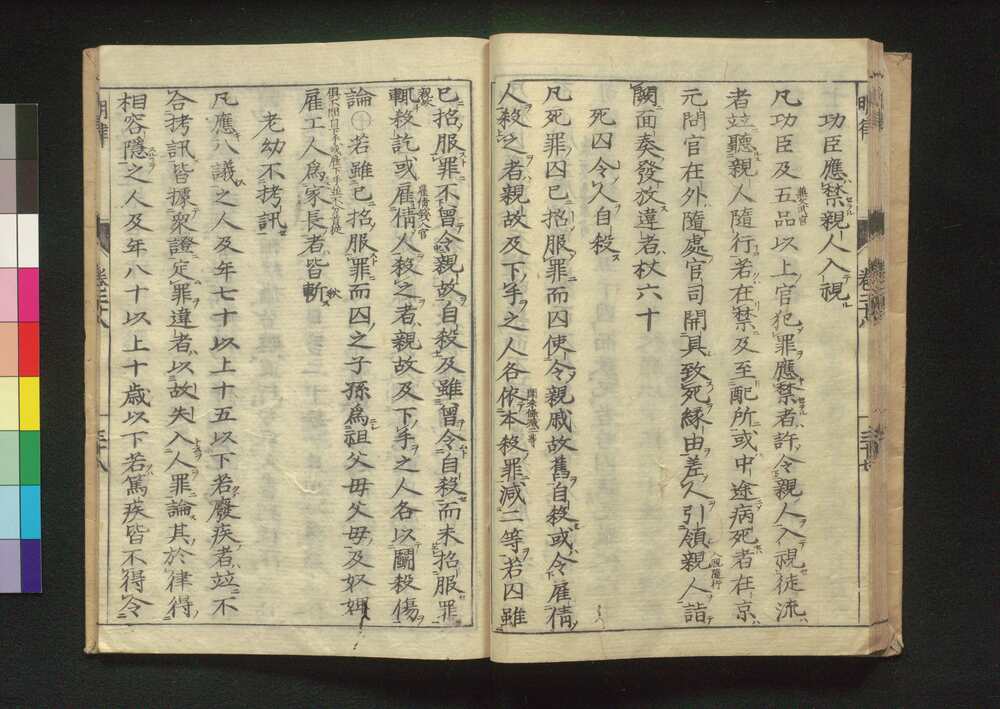 功臣應禁親人入視
凡功臣及五品以上官犯罪應禁者許令親人入視徒流
者竝聽親人隨行若在禁及至配所或中途病死者在京
元問官在外隨處官司開具致死緣由差人引領親人詣
闕面奏發放違者杖六十
死囚令人自殺
凡死罪囚已招服罪而囚使令親戚故舊自殺或令雇倩
人殺之者親故及下手之人各依本殺罪減二等若囚雖
已招服罪不曾令親故自殺及雖曾令自殺而未招服罪
輒殺訖或雇倩人殺之者親故及下手之人各以鬭殺傷
論○若雖已招服罪而囚之子孫爲祖父母父母及奴婢
雇工人爲家長者皆斬
老幼不拷訊
凡應八議之人及年七十以上十五以下若廢疾者竝不
合拷訊皆據衆證定罪違者以故失入人罪論其於律得
相容隱之人及年八十以上十歲以下若篤疾皆不得令
明律
卷二十八
明律
卷二十八